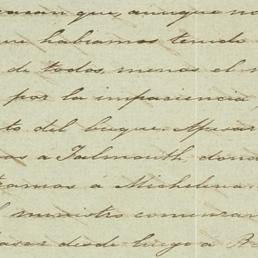 que, aunque no
habiamos tenido
de todos, menos el
por la impaciencia
to del buque. Apesar
as a Falmouth, donde
tramos á Michelena
l ministro comunica
desde luego a